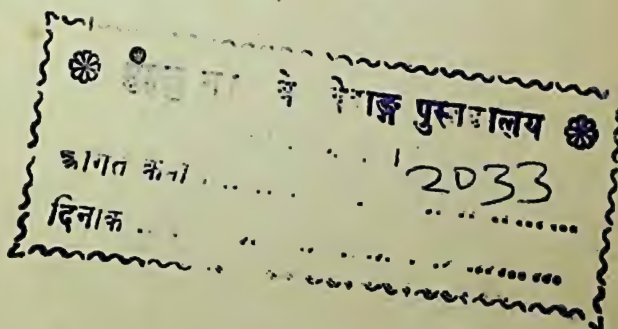 वेदाङ्ग पुस्तकालय
आगत क्रमांक . . . . . . 2033
दिनांक . . . .